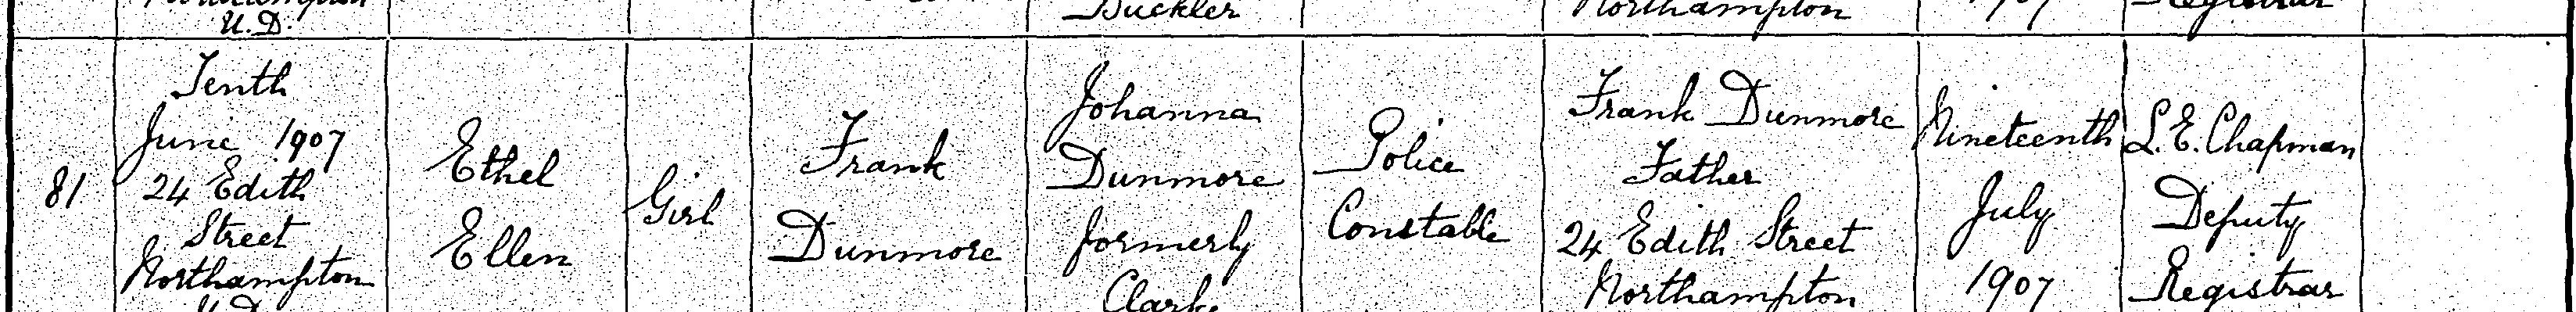 U.D.
Buckler
Northampton
1907
Registrar
81
Tenth
June 1907
24 Edith
Street
Northampton
U.D.
Ethel
Ellen
Girl
Frank
Dunmore
Johanna
Dunmore
formerly
Clarke
Police
Constable
Frank Dunmore
Father
24 Edith Street
Northampton
Nineteenth
July
1907
L.E. Chapman
Deputy
Registrar